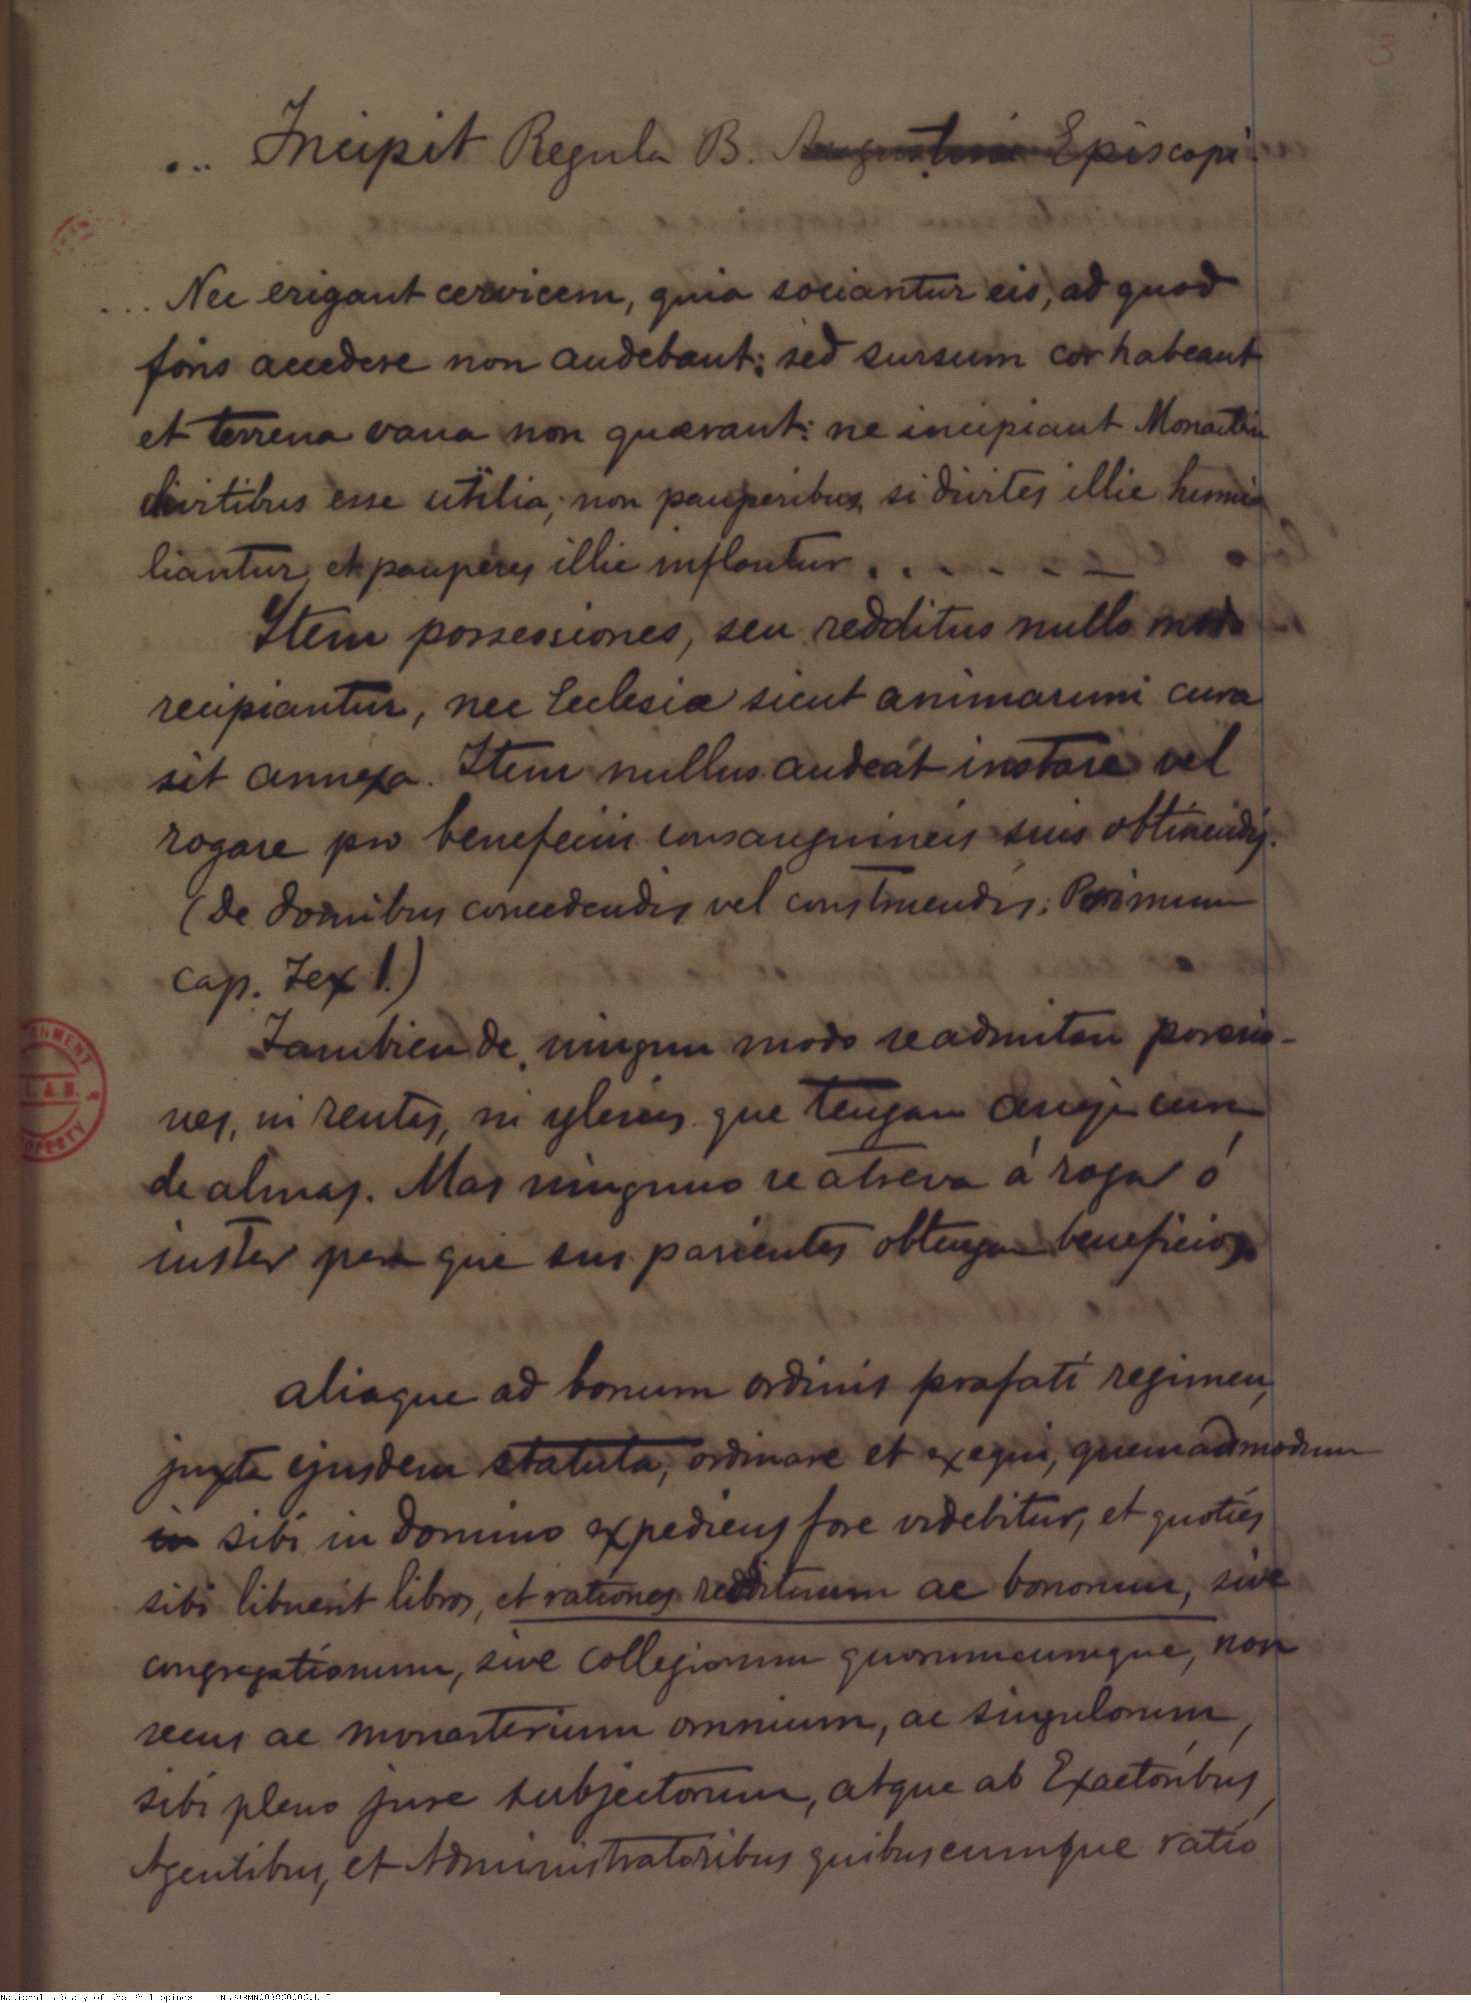 3
... Incipit Regula B. Augustini Episcopi.
... Nec erigant cervicem, quia sociantur eis, ad quod
foris accedere non audebant: sed sursum cor habeant
et terrena vana non quærant: ne incipiant Monasteria
divitibus esse utilia, non pauperibus, si divites illic humi
liantur, et pauperes illic inflantur . . . . . .
Item possessiones, seu redditus nullo modo
recipiantur, nec Eclesiæ sicut animarum cura
sit annexa. Item nullus audeat instare vel
rogare pro beneficiis consanguineis suis obtinendis.
(De domibus concedendis vel construendis; Primum
cap. Tex 1.)
Tambien de ningun modo se admitan posesio-
nes, ni rentas, ni yglesias que tengan aneja cura
de almas. Mas ninguno se atreva á rogar ó
instar para que sus parientes obtengan beneficios.
aliaque ad bonum ordinis præfati regimen,
juxta ejusdem statuta, ordinare et exequi, quemadmodum
in sibi in Domino expediens fore videbitur, et quoties
sibi libuerit libros, et rationes reddituum ac bonorum, sive
congregationum, sive collegiorum quorumcumque, non
secus ac monasterium omnium, ac singulorum,
sibi pleno jure subjectorum, atque ab Exactoribus,
Agentibus, et Administratoribus quibuscumque ratio
PROPERTY